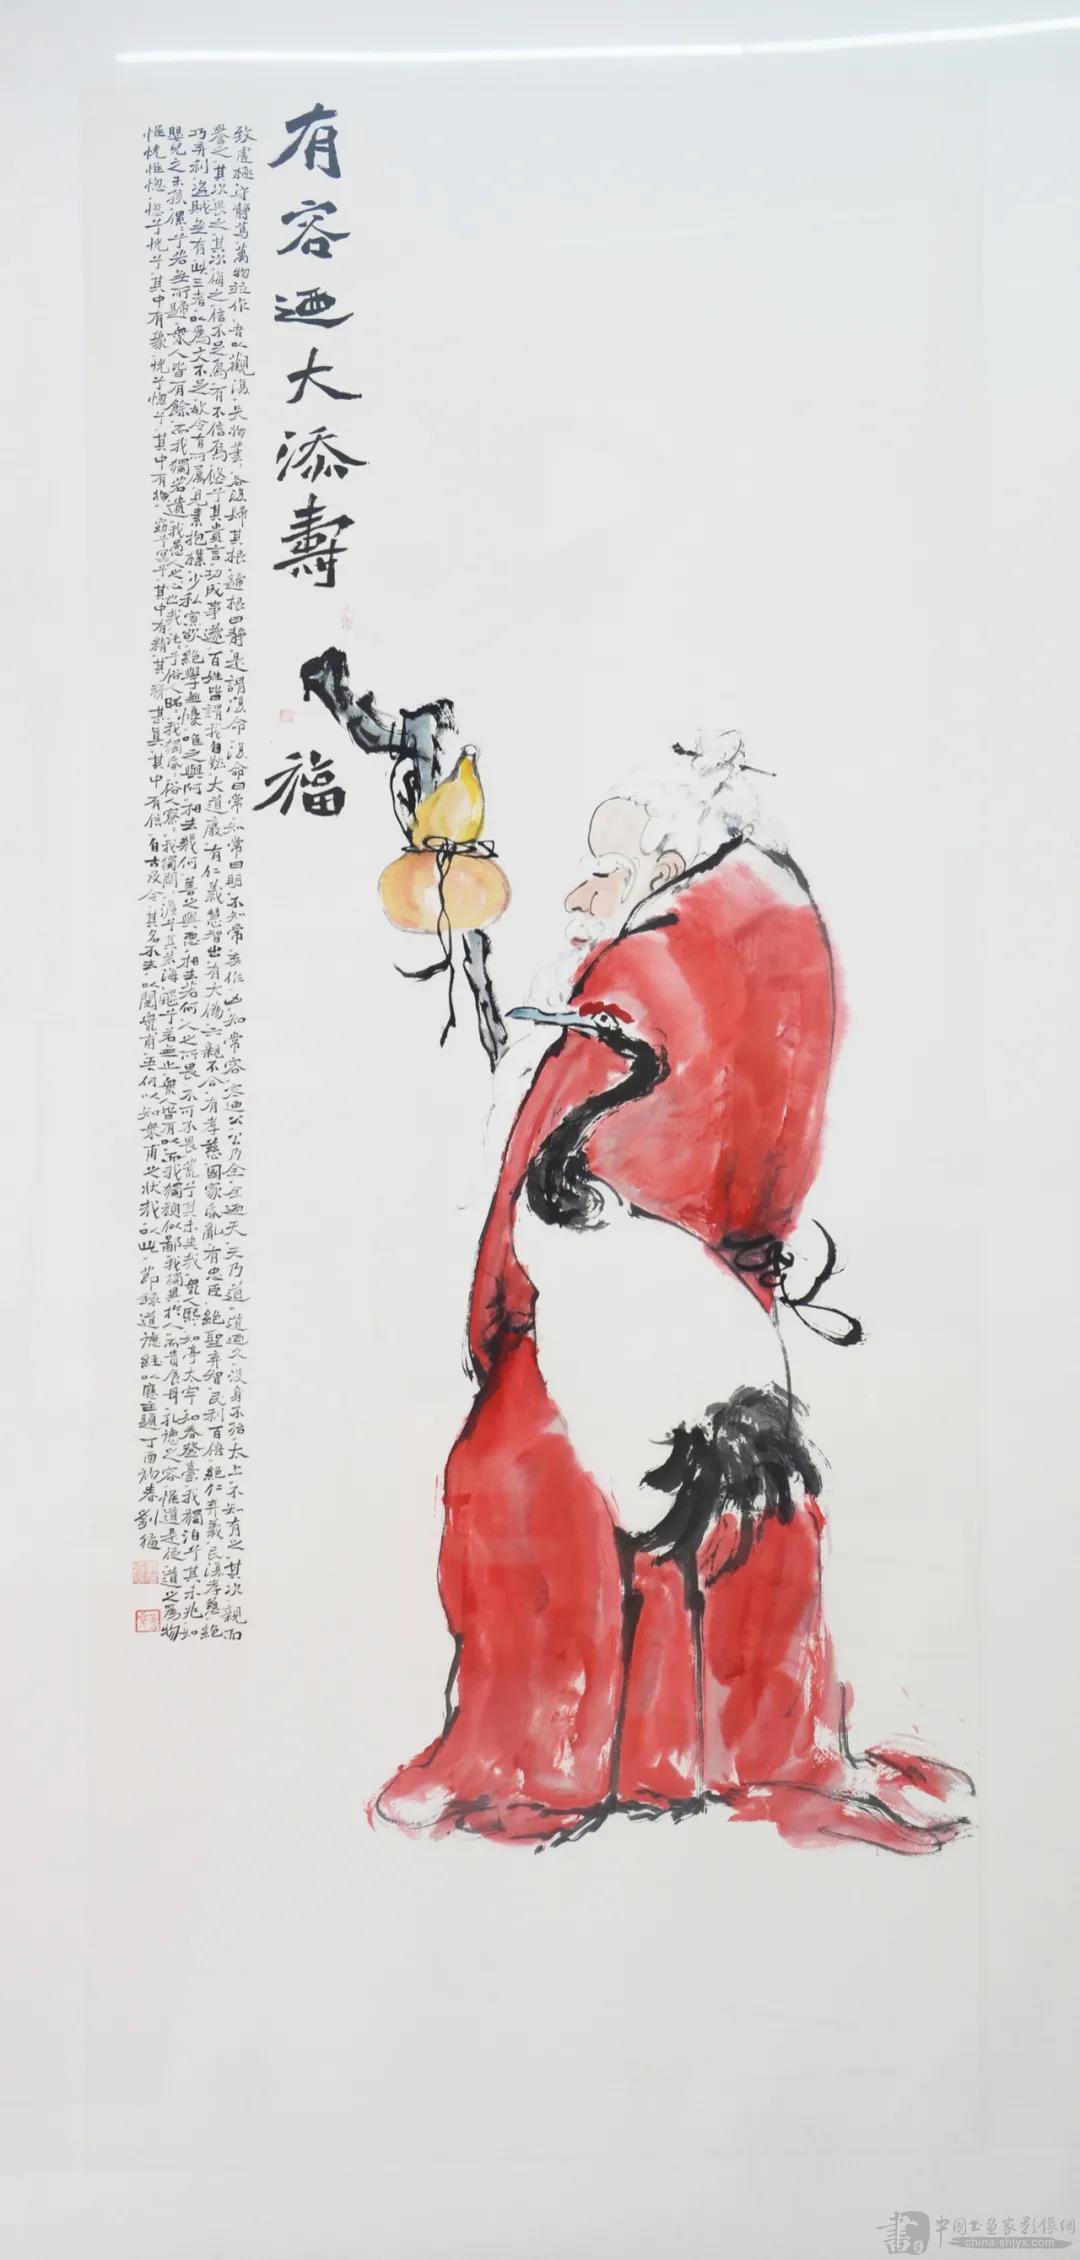 有容迺大添壽
福
致虛極守靜篤萬物並作吾以觀復夫物芸各復歸其根歸根曰靜是謂復命復命曰常知常曰明不知常妄作凶知常容容迺公公乃全全迺天天乃道道迺久沒身不殆太上不知有之其次親而
譽之其次畏之其次侮之信不足焉有不信焉悠乎其貴言功成事遂百姓皆謂我自然大道廢有仁義慧智出有大偽六親不合有孝慈國家昏亂有忠臣絕聖弃智民利百倍絕仁弃義民復孝慈絕
巧弃利盜賊無有此三者以為文不足故令有所属見素抱樸少私寡欲絕學無憂唯之與阿相去幾何善之與惡相去若何人之所畏不可不畏荒乎其未央哉眾人熙如享太牢如春登臺我獨泊乎其未兆如
嬰兒之未孩儽乎若無所歸眾人皆有餘而我獨若遺我愚人之心也哉沌乎俗人昭我獨昏俗人察我獨悶澹乎其若海飂乎若無止眾人皆有以而我獨頑似鄙我獨異於人而貴食母孔德之容惟道是從道之為物
惟恍惟惚惚乎恍乎其中有象恍乎惚乎其中有物窈乎冥乎其中有精其精甚真其中有信自古及今其名不去以閱眾甫吾何以知眾甫之狀哉以此節錄道德經以應主題丁酉初春劉
中國书画家影像網
china-shjyx.com